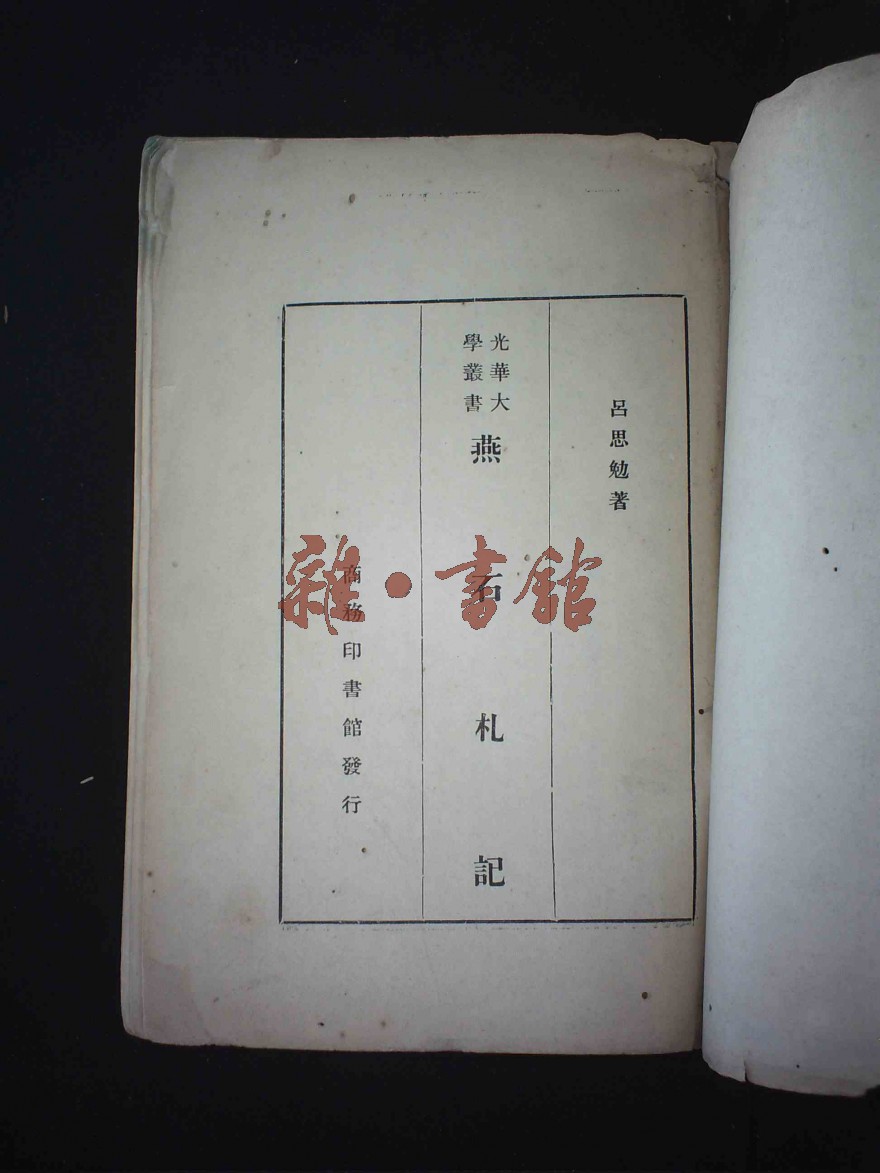 呂思勉著
光華大
學叢書
燕石札記
商務印書館發行
雜·書館